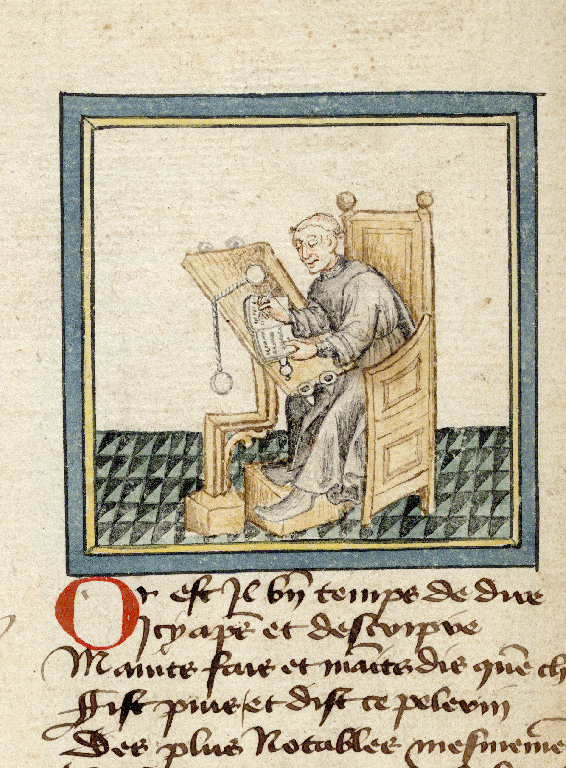 Or est Il bñ temps de dire
Icy apr̃s et descripre
Maints fais et mãts dis quẽ ch
Gist puis et dist ce pelerin
Des plus Notables mesmemẽ